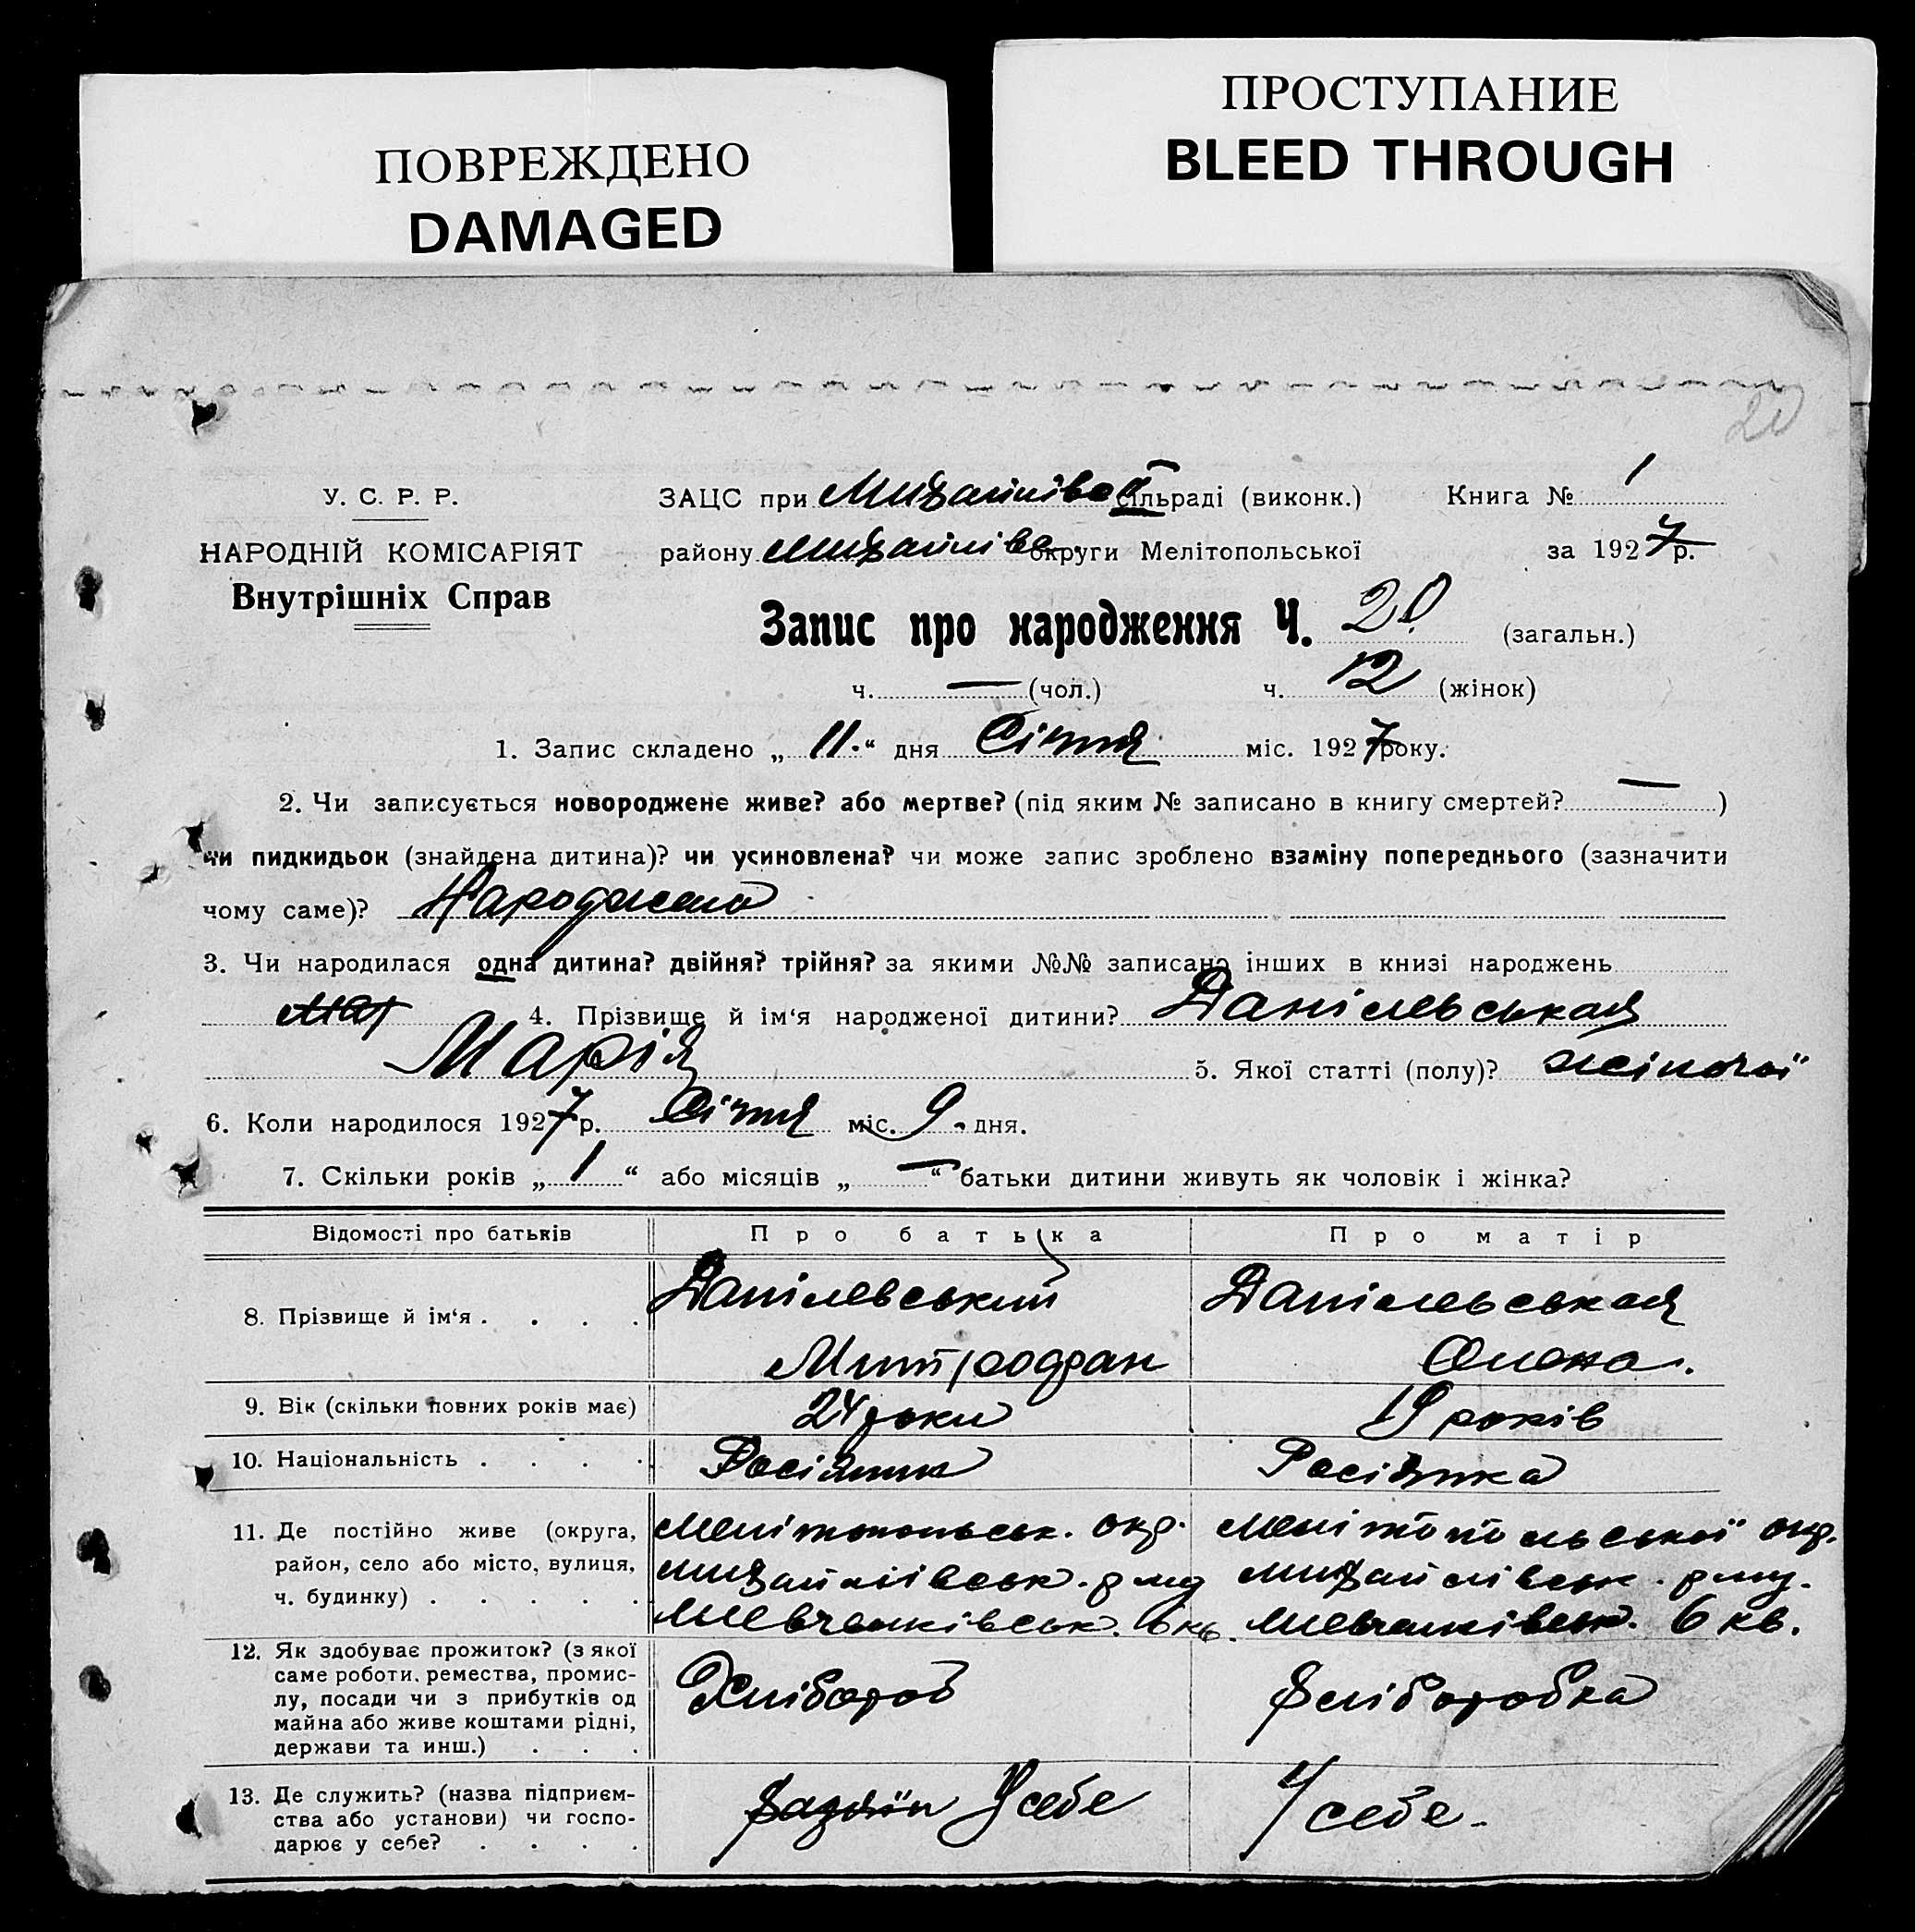 ПОВРЕЖДЕНО
DAMAGED
ПРОСТУПАНИЕ
BLEED THROUGH
20
У. С. Р. Р.
НАРОДНІЙ КОМІСАРІЯТ
Внутрішніх Справ
ЗАЦС при Михайлівськ сільраді (виконк.) Книга № 1
району Михайлівськ округи Мелітопольської за 1927 р.
Запис про народження Ч. 20 (загальн.)
ч. — (чол.) ч. 12 (жінок)
1. Запис складено „ 11 “ дня Січня міс. 1927 року.
2. Чи записується новороджене живе? або мертве? (під яким № записано в книгу смертей? — )
чи пидкидьок (знайдена дитина)? чи усиновлена? чи може запис зроблено взаміну попереднього (зазначити
чому саме)? Народжена
3. Чи народилася одна дитина? двійня? трійня? за якими №№ записано інших в книзі народжень
Мар 4. Прізвище й ім‘я народженої дитини? Данілевськая
Марія 5. Якої статті (полу)? жіночої
6. Коли народилося 1927 р. Січня міс. 9 дня.
7. Скільки років „ 1 “ або місяців „ — “ батьки дитини живуть як чоловік і жінка?
Відомості про батьків Про батька Про матір
8. Прізвище й ім‘я . . . . Данілевський Данілевськая
Митрофан Олена.
9. Вік (скільки повних років має) 24 роки 19 років
10. Національність . . . . Росіянин Росіянка
11. Де постійно живе (округа, Мелітопольськ. окр. Мелітопольської окр.
район, село або місто, вулиця, Михайлівськ. р-ну Михайлівськ. р-ну.
ч. будинку) . . . . . Шевченківськ. 6 кв. Шевченківськ. 6 кв.
12. Як здобуває прожиток? (з якої
саме роботи, ремества, промис-
лу, посади чи з прибутків од Хлібороб Хліборобка
майна або живе коштами рідні,
держави та инш.) . . .
13. Де служить? (назва підприєм-
ства або установи) чи госпо- Усебе У себе
дарює у себе? . . . .